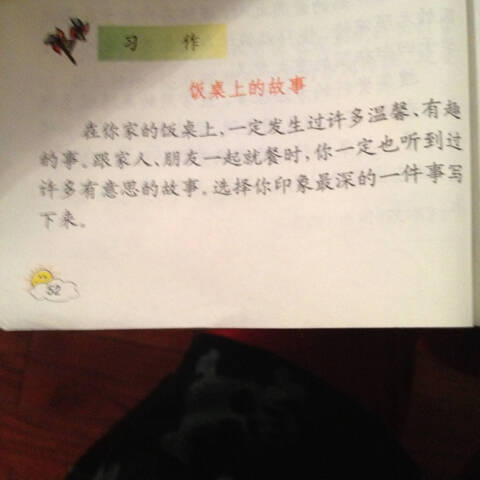 习 作
饭桌上的故事
在你家的饭桌上,一定发生过许多温馨、有趣
的事。跟家人、朋友一起就餐时,你一定也听到过
许多有意思的故事。选择你印象最深的一件事写
下来。
52